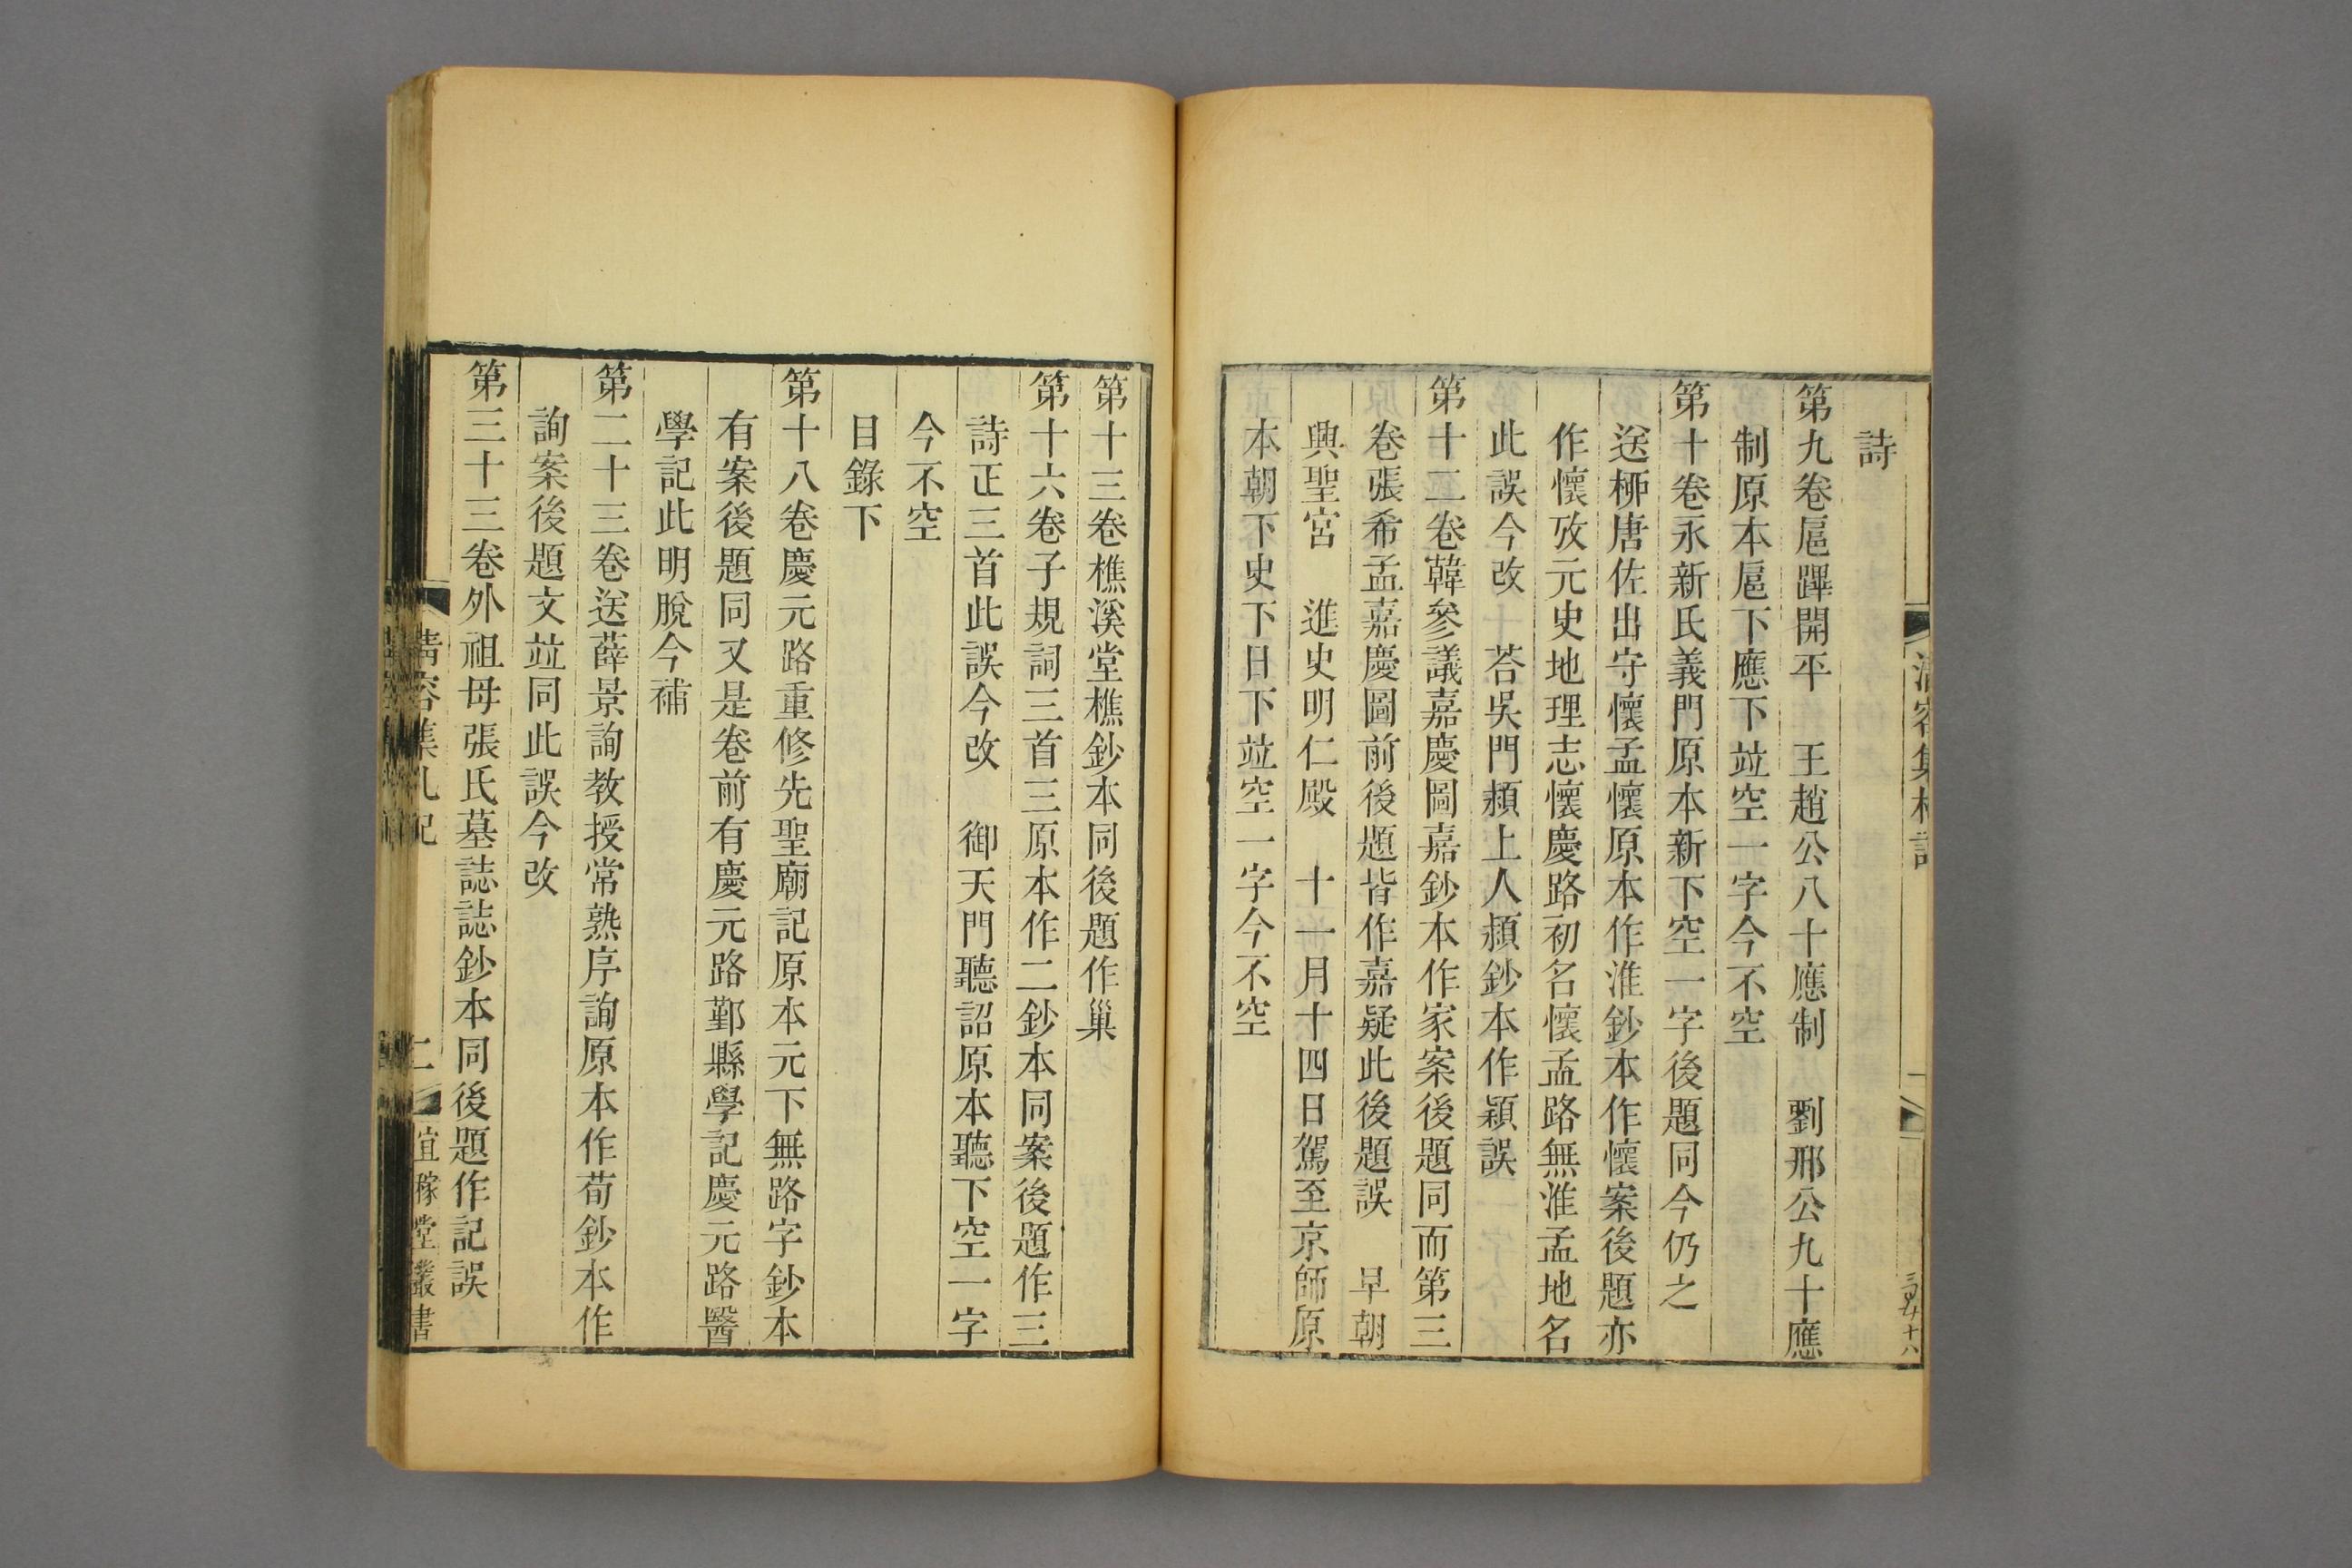 詩
第九卷扈蹕開平　王趙公八十應制　劉邢公九十應
制原本扈下應下竝空一字今不空
第十卷永新氏義門原本新下空一字後題同今仍之
送柳唐佐出守懷孟懷原本作淮鈔本作懷案後題亦
作懷攷元史地理志懷慶路初名懷孟路無淮孟地名
此誤今改　荅吳門熲上人熲鈔本作穎誤
第十二卷韓參議嘉慶圖嘉鈔本作家案後題同而第三
卷張希孟嘉慶圖前後題皆作嘉疑此後題誤　早朝
興聖宮　進史明仁殿　十一月十四日駕至京師原
本朝下史下日下竝空一字今不空
第十三卷樵溪堂樵鈔本同後題作巢
第十六卷子規詞三首三原本作二鈔本同案後題作三
詩正三首此誤今改　御天門聽詔原本聽下空一字
今不空
目錄下
第十八卷慶元路重修先聖廟記原本元下無路字鈔本
有案後題同又是卷前有慶元路鄞縣學記慶元路醫
學記此明脫今補
第二十三卷送薛景詢教授常熟序詢原本作荀鈔本作
詢案後題文竝同此誤今改
第三十三卷外祖母張氏墓誌誌鈔本同後題作記誤
清容集札記
二
宜稼堂叢書